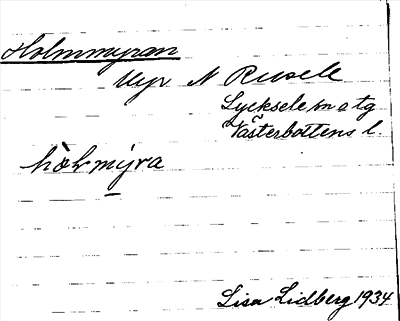 Holmmyran
Myr N Rusele
Lycksele sn o tg
Västerbottens l.
hòlmýra
Lisa Lidberg 1934